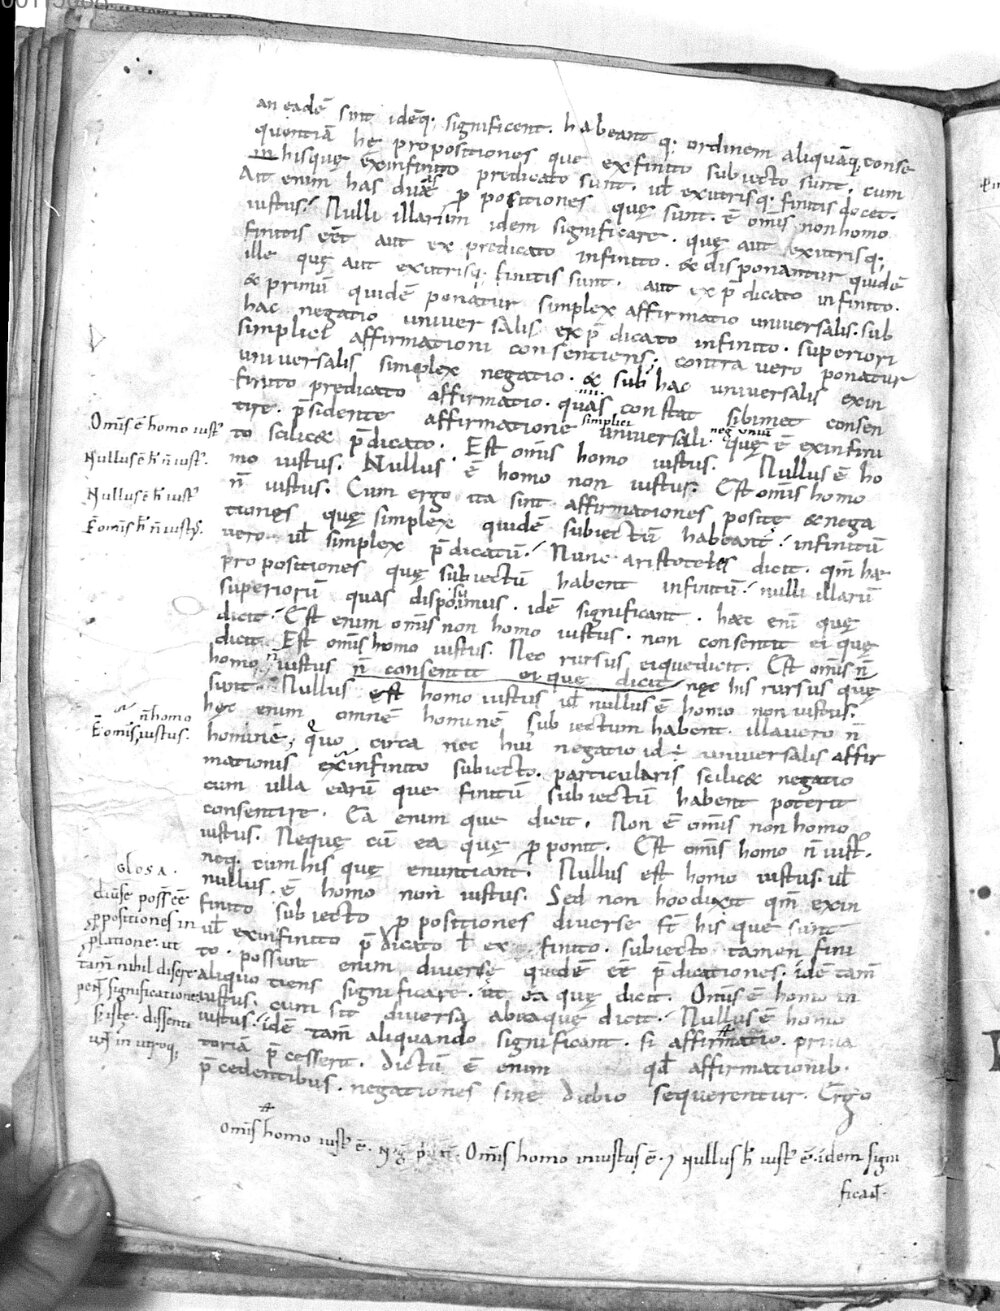 an eadē sint idēq; significent. habeant q; ordinem aliquāq; conse
quentiā hę propositiones que ex finito subiecto sunt. cum
in hisquę ex infinito predicato sunt. ul̄ ex utrisq; finitis docet.
Ait enim has duas p̄ positiones quę sunt. ē omis non homo
iustus. Nulli illarum idem significare. quę aut ex utrisq;
finitis eēt aut ex predicato infinito. & disponantur quidē
ille quę aut ex utrisq; finitis sunt. aut ex p̄dicato infinito.
& primū quidē ponatur simplex affirmatio uniuersalis. sub
hac negatio uniuersalis ex p̄dicato infinito. superiori
simplici affirmationi consentiens. contra uero ponatur
uniuersalis simplex negatio. & sub hac uniuersalis exin
finito predicato affirmatio. quas constat sibimet consen
tire. p̄sidente affirmatione simplici uniuersali. quę ē exinfini
to scilic& p̄dicato. Est om̄is homo iustus. Nullus ē ho
mo iustus. Nullus ē homo non iustus. Est om̄is homo
n̄ iustus. Cum ergo ita sint affirmationes positę & nega
tiones quę simplex quidē subiectū habeant. infinitū
uero ul̄ simplex p̄dicatū. Nunc aristoteles dicit. qm̄ hae
propositiones quę subiectū habent infinitū. nulli illarū
superiorū quas disposuimus. idē significant. haec eni quę
dicit. Est enim omis non homo iustus. non consentit ei quę
dicit. Est om̄is homo iustus. Nec rursus ei que dicit. Est om̄is n̄
homo n̄ iustus n̄ consentit ei quę dicit nęc his rursus quę
sunt. Nullus est homo iustus ul̄ nullus ē homo non iustus.
hęc enim omnē hominē subiectum habent. illa uero n̄
hominē; Quo circa nec hui negatio id ē uniuersalis affir
mationis ex infinito subiecto. particularis scilic& negatio
cum ulla earū que finitū subiectū habent poterit
consentire. Ea enim que dicit. Non ē om̄is non homo
iustus. Neque cū ea quę p̄ponit. Est om̄is homo n̄ iust.
neq; cum his quę enuntiant. Nullus est homo iustus. ul̄
nullus. ē homo non iustus. Sed non hoc dixit qm̄ exin
finito subiecto p̄positiones diuerse st̄ his que sunt
ul̄ exinfinito p̄dicato l̄ ex finito. subiecto tamen fini
to. possunt enim diuerse quidē eē p̄dicationes. idē tam̄
aliquotiens significare. ut ea quę dicit. Om̄is ē homo in
iustus. cum sit diuersa ab ea quę dicit. Nullus ē homo
iustus. idē tam̄ aliquando significant. si affirmatio. prius
p̄cesserit. dictū ē enim qd̄ affirmationib.
p̄cedentibus. negationes sine dubio sequerentur. Ergo
Om̄is ē homo iust
Nullus ē h̄ n̄ iust.
Nullus ē h̄ iust
Ē om̄is h̄ n̄ iust.
n̄ homo
Ē om̄is iustus.
GLOSA.
diuise poss̄ eē
p̄positiones in
p̄latione. ut
tam̄ nihil differe
Om̄is homo iust ē. Om̄is homo iniustus ē. 7 Nullus h̄ iust ē. idem signi
fica